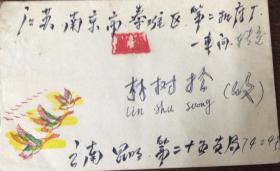 江苏南京市秦淮区第二机床厂
一车间
林树松(收)
lin shu soong
云南昆明.第二十五支局